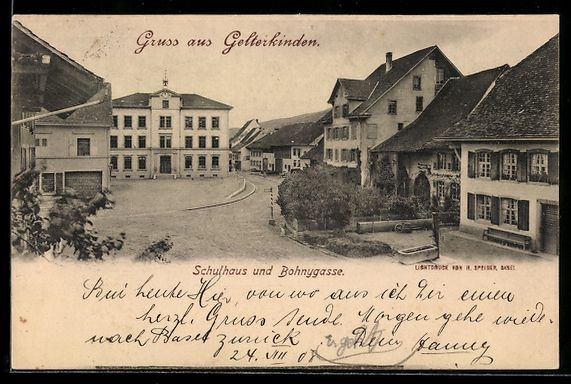 Gruss aus Gelterkinden.
Schulhaus und Bohnygasse.
LICHTDRUCK VON H. SPEISER, BASEL
Bin heute Hier, von wo aus ich Dir einen
herzl. Gruss sende. Morgen gehe wieder
nach Basel zurück Dein
24. VIII 01